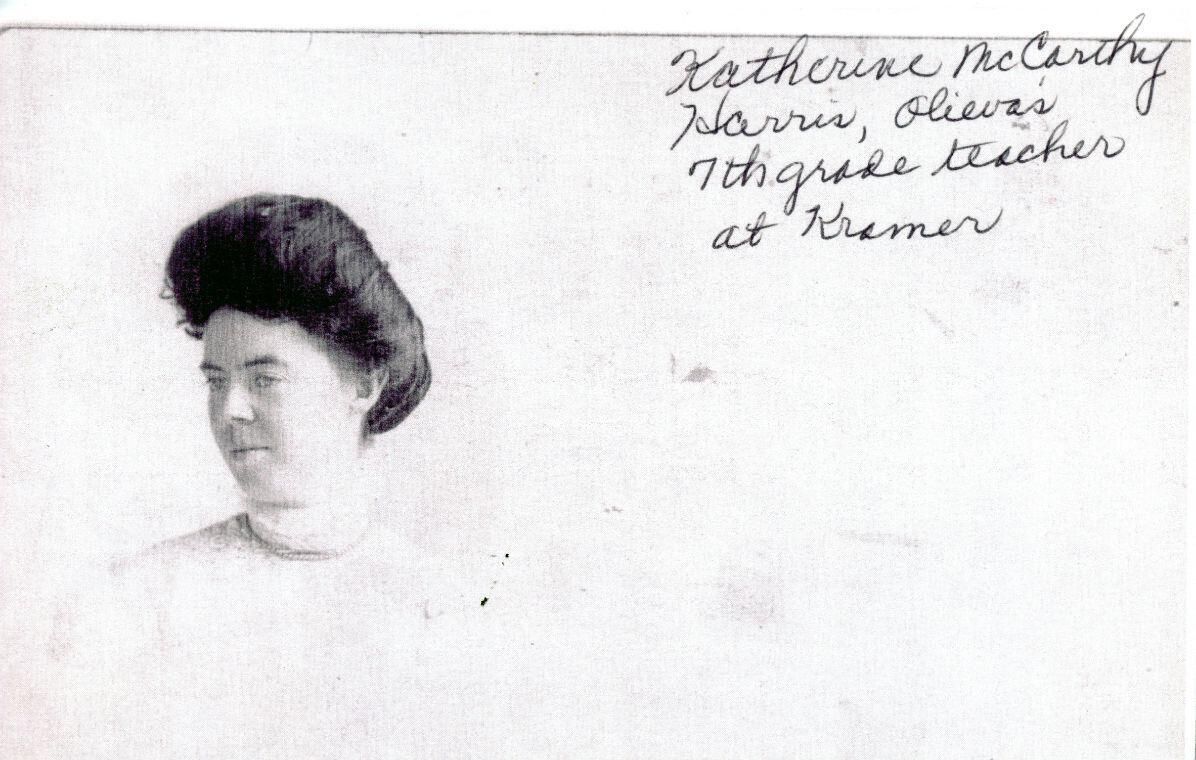 Katherine McCarthy
Harris, Olieva's
7th grade teacher
at Kramer